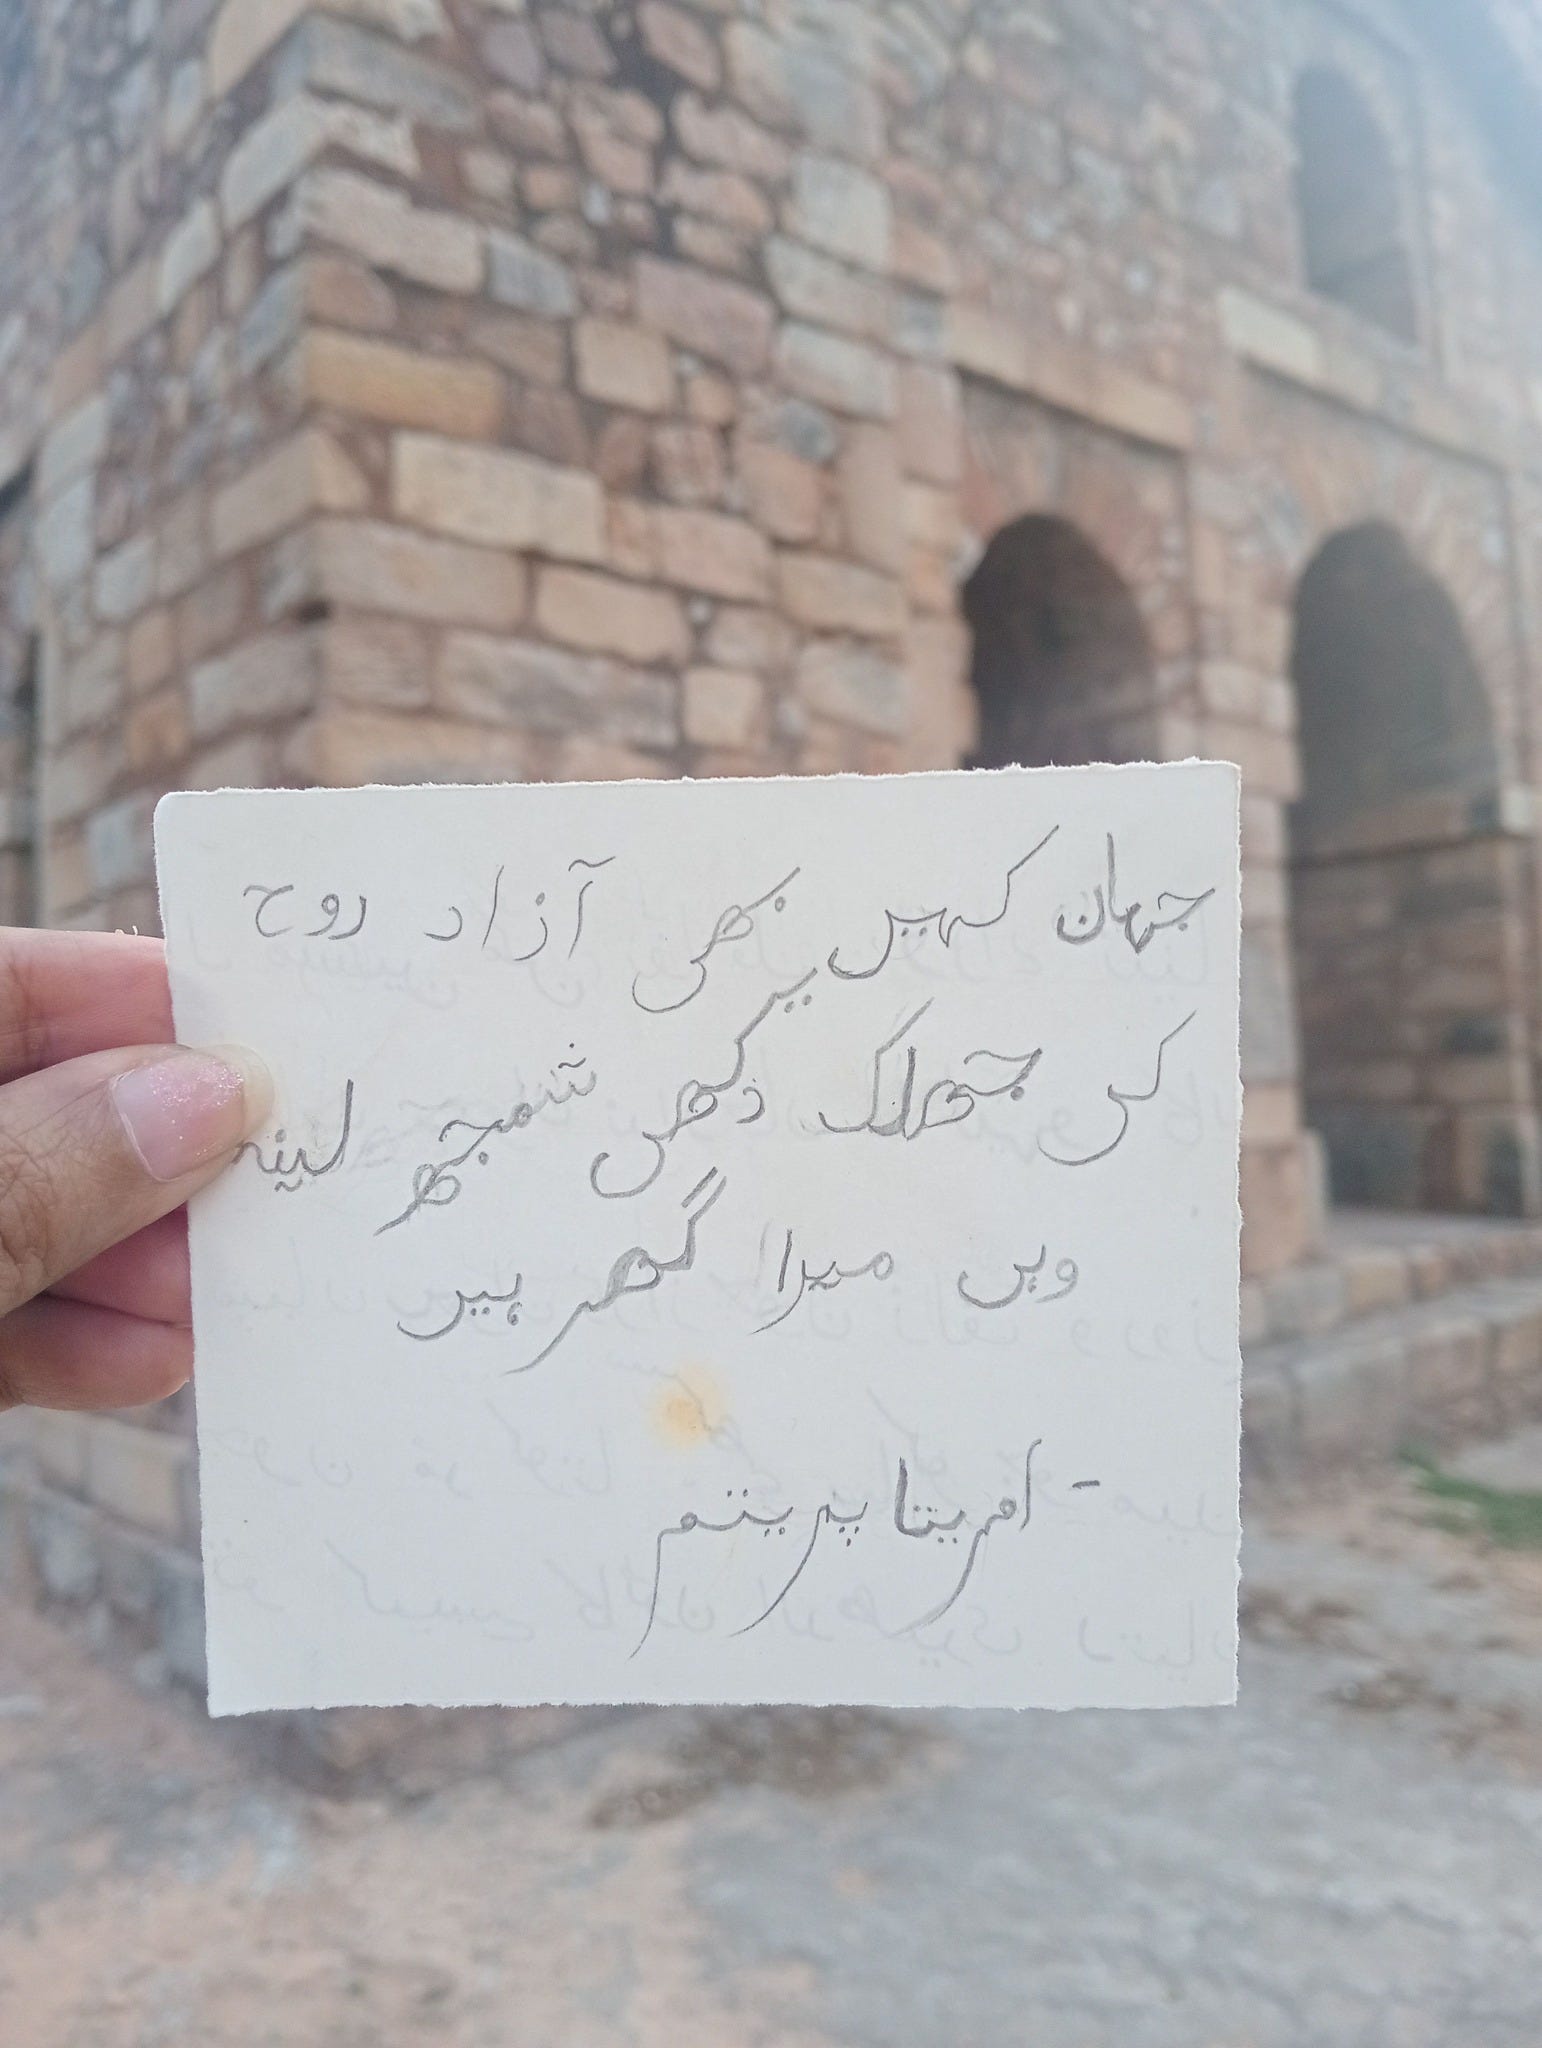 جہان کہیں بھی آزاد روح
کی جھلک دکھی سمجھ لینہ
وہیں میرا گھر ہیں
- امریتا پریتم